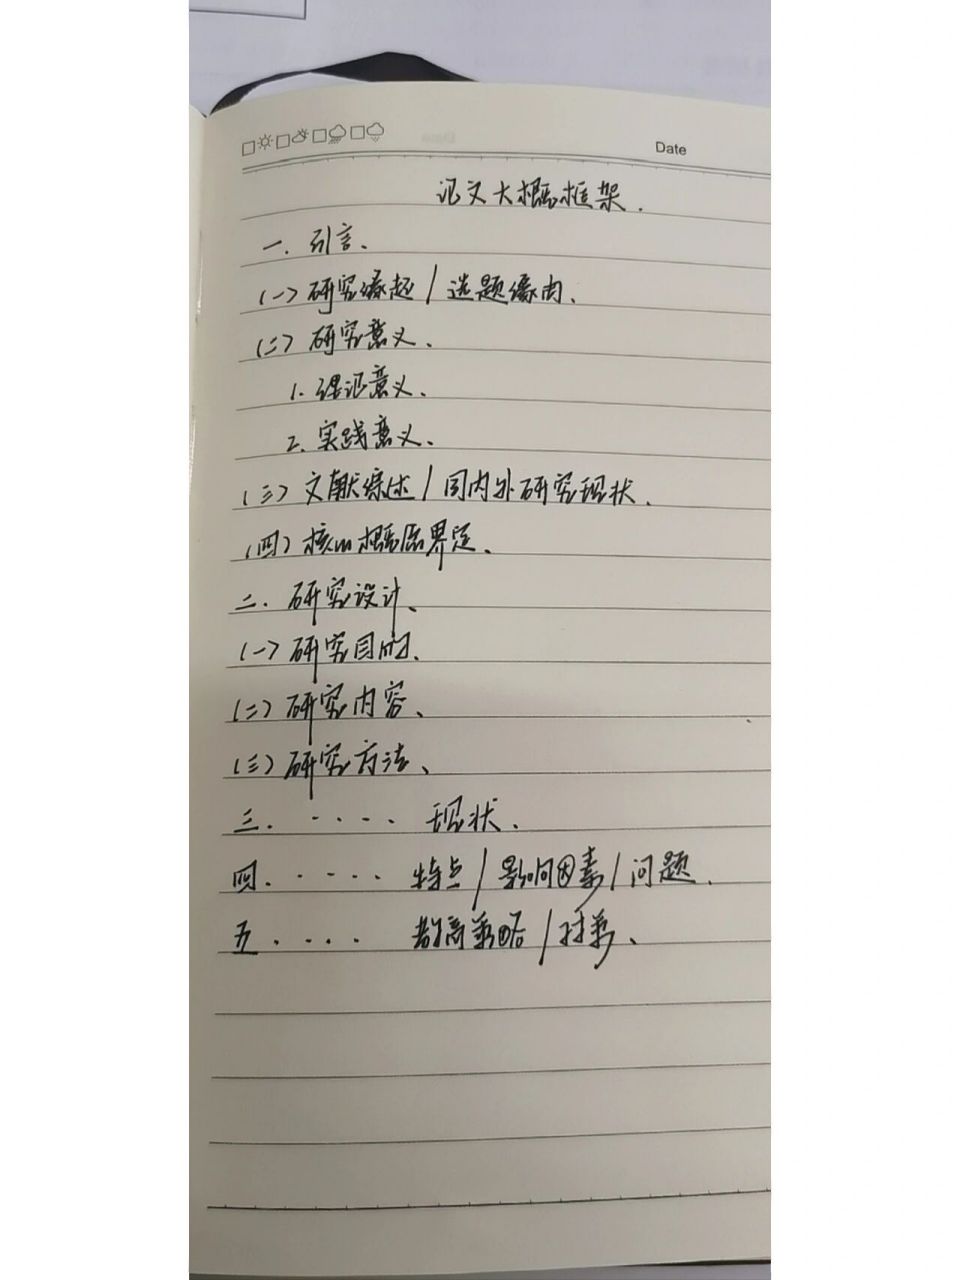 Date
论文大概框架.
一. 引言.
(一)研究缘起/选题缘由.
(二)研究意义.
1.理论意义.
2.实践意义.
(三)文献综述/国内外研究现状.
(四)核心概念界定.
二.研究设计.
(一)研究目的.
(二)研究内容.
(三)研究方法.
三. .... 现状.
四. .... 特点/影响因素/问题.
五. .... 策略/对策.